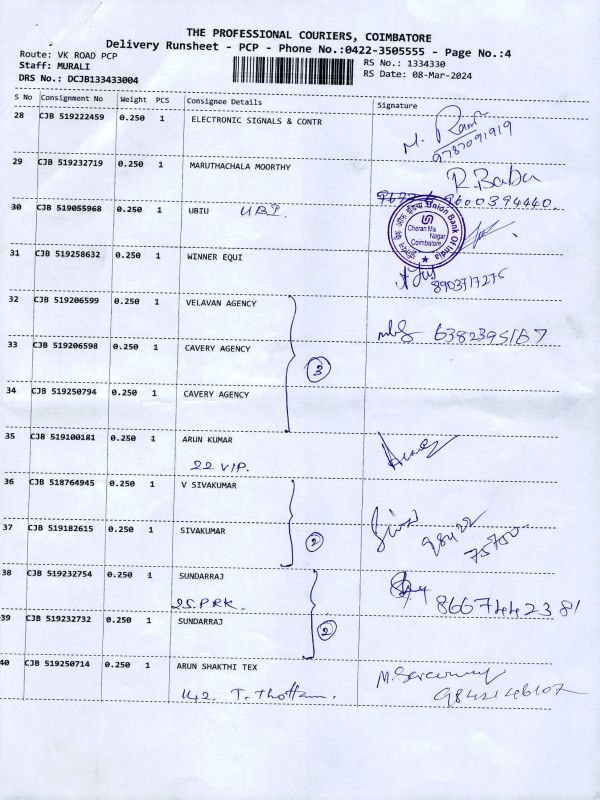 THE PROFESSIONAL COURIERS, COIMBATORE
Delivery Runsheet - PCP - Phone No.:0422-3505555 - Page No.:4
Route: VK ROAD PCP
Staff: MURALI
DRS No.: DCJB133433004
RS No.: 1334330
RS Date: 08-Mar-2024
S No Consignment No Weight PCS Consignee Details Signature
28 CJB 519222459 0.250 1 ELECTRONIC SIGNALS & CONTR M. Ram
9787091919
29 CJB 519232719 0.250 1 MARUTHACHALA MOORTHY R. Babu
9600394440.
30 CJB 519055968 0.250 1 UBIU UBI.
Union Bank Of India
Cheran Ma
Nagar
Coimbatore
31 CJB 519258632 0.250 1 WINNER EQUI
8903717275
32 CJB 519206599 0.250 1 VELAVAN AGENCY
6382395167
33 CJB 519206598 0.250 1 CAVERY AGENCY
3
34 CJB 519250794 0.250 1 CAVERY AGENCY
35 CJB 519100181 0.250 1 ARUN KUMAR
22 VIP.
36 CJB 518764945 0.250 1 V SIVAKUMAR
37 CJB 519182615 0.250 1 SIVAKUMAR 2
98422
75750
38 CJB 519232754 0.250 1 SUNDARRAJ
25. PRK. 8667442381
39 CJB 519232732 0.250 1 SUNDARRAJ 2
40 CJB 519250714 0.250 1 ARUN SHAKTHI TEX
142. T. Thottam. 9842146107